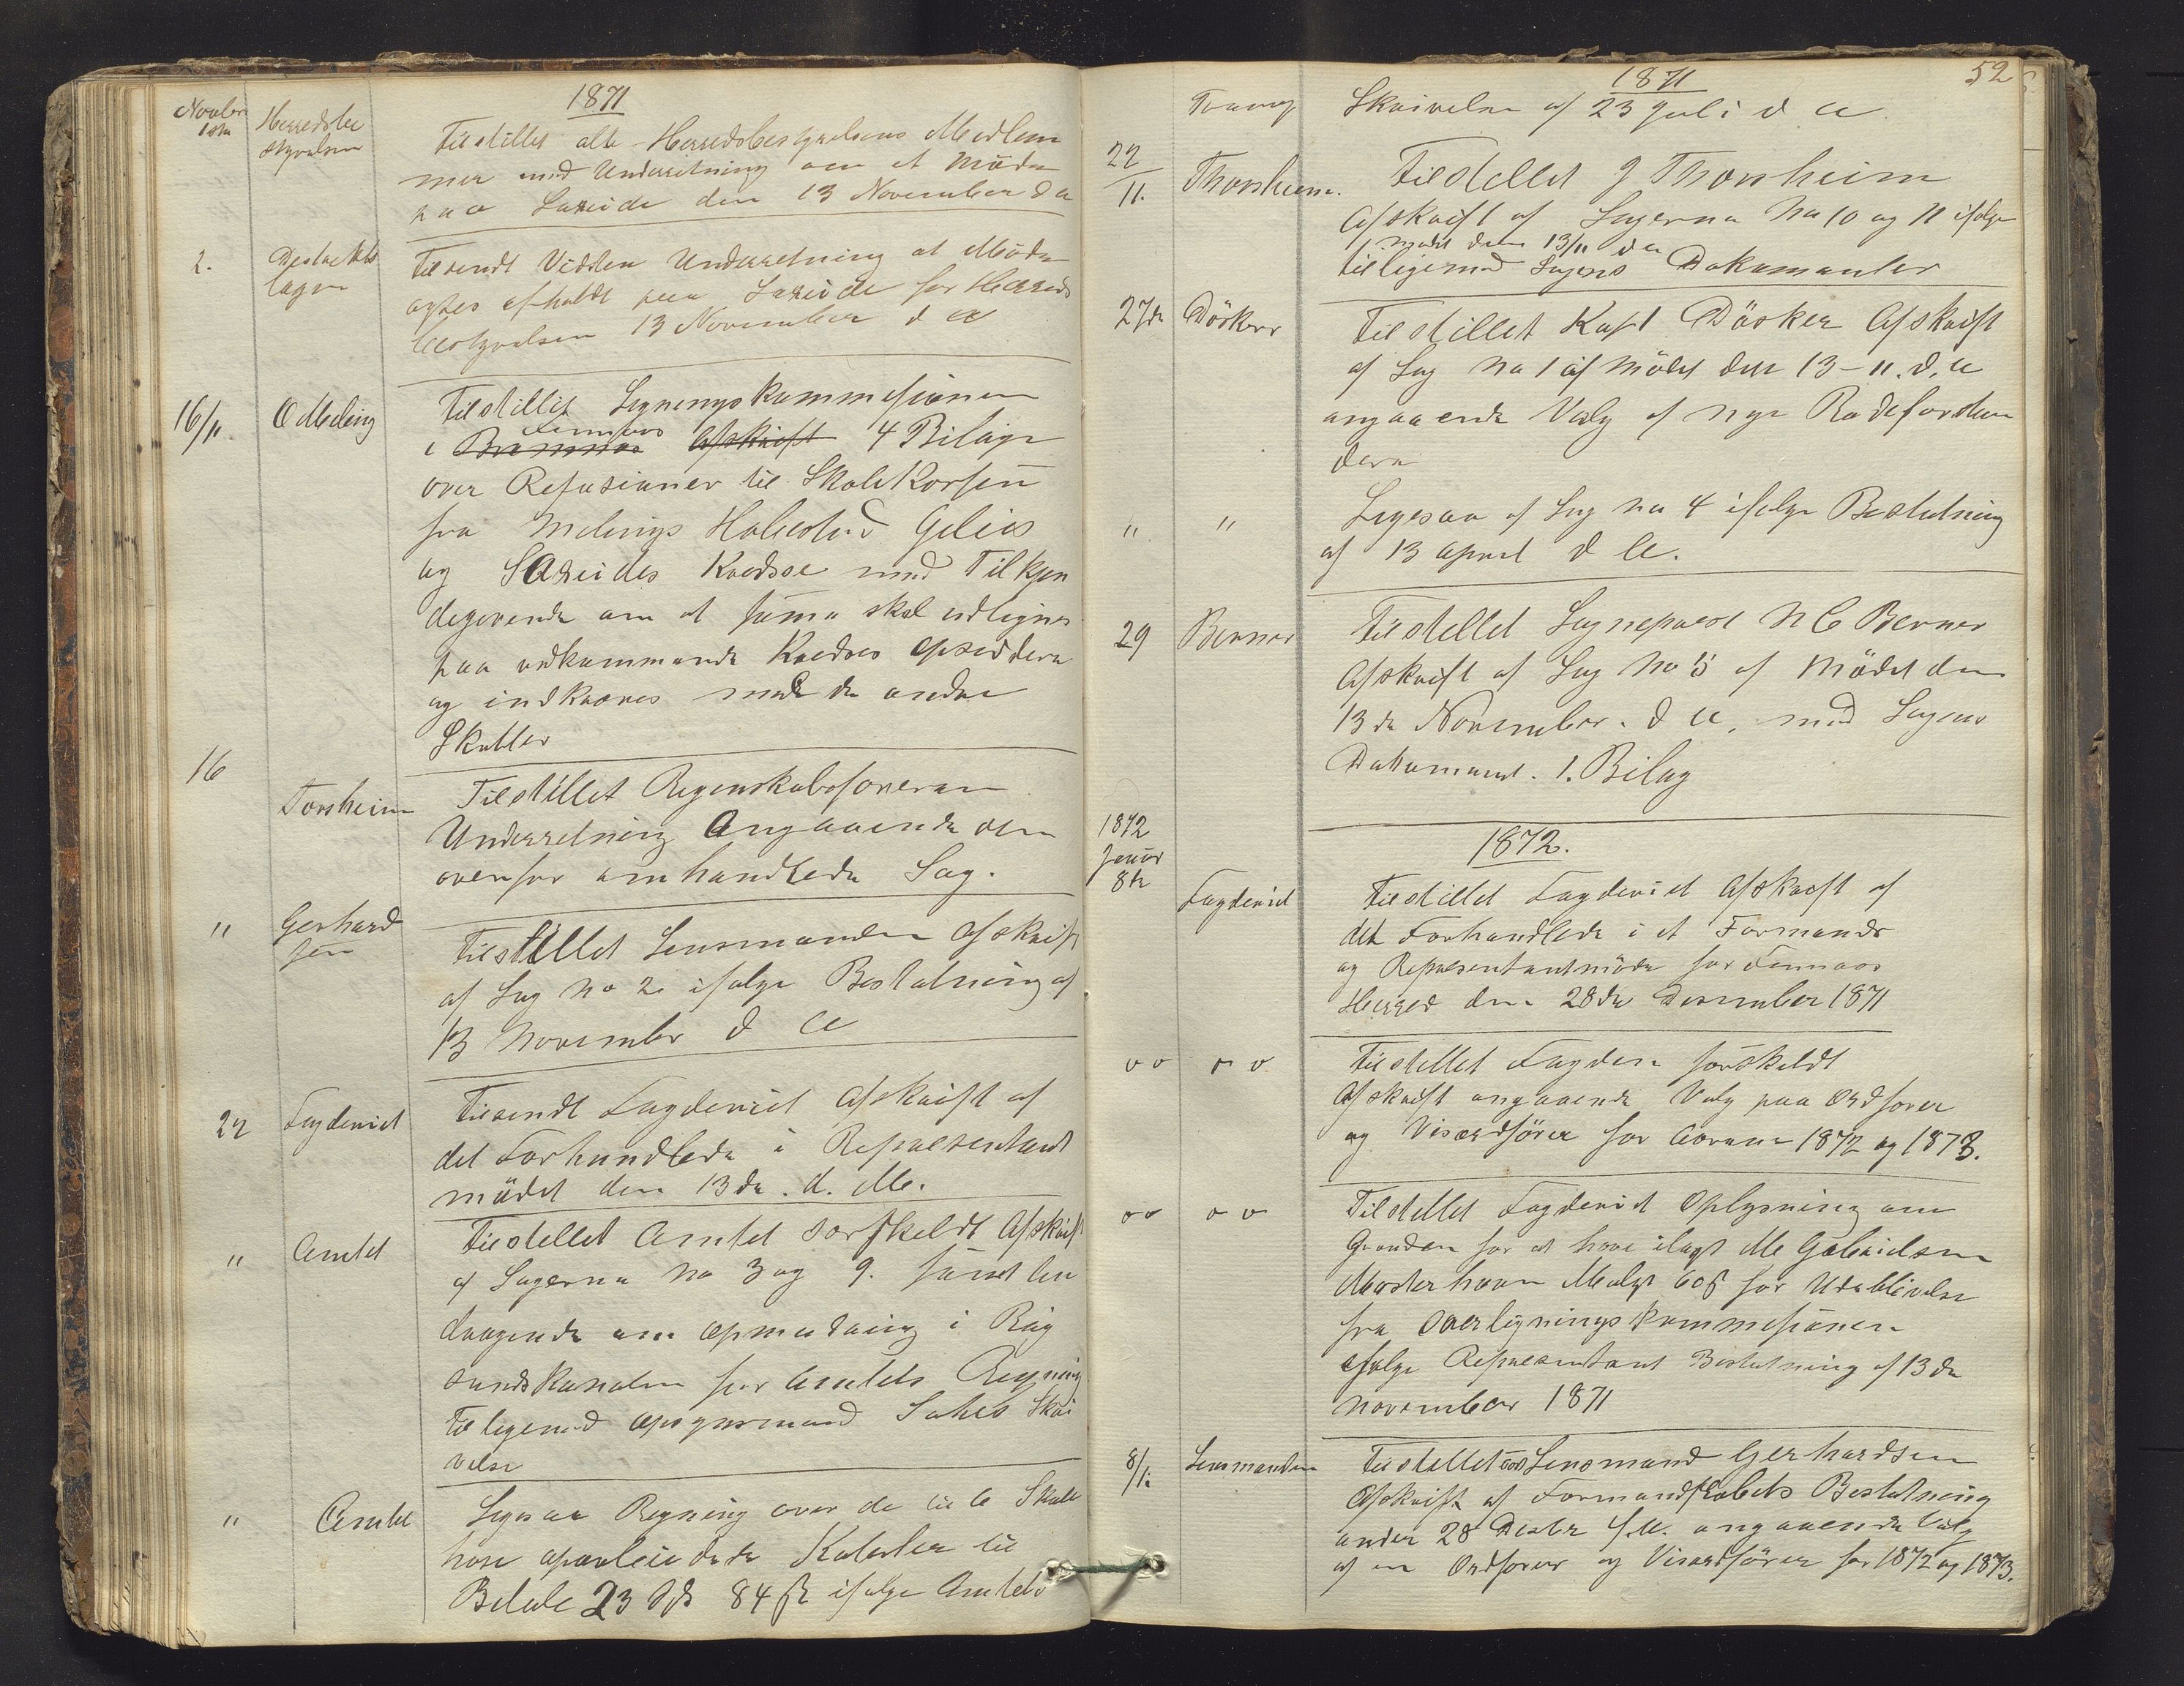 1871
Novbr 1ste
Herredsbe
styrelsen
Tilstillet alle Herredsbestyrelsens Medlem
mer med Underretning om et Møde
paa Søreide den 13 November d a
2.
Distrikts
lægen
Tilsendt Underretning at Møde
agtes afholdt paa Søreide for Herreds
bestyrelsen 13 November d a
16/11.
O Meling
Tilstillet Ligningskommissionen
i Bremnæs Finnaas Afskrift 4 Bilage
over Refusioner til Skolekassen
fra Melings Gilies
og Søreides Kredse med Tilkjen
degivende om at samme skal udlignes
paa vedkommende Kredses Opsiddere
og indkræves med de andre
Skatter
16
Torsheim
Tilstillet Regnskabsføreren
Underretning Angaaende den
ovenfor omhandlede Sag.
"
Gerhard
sen
Tilstillet Lensmanden Afskrift
af Sag No 2 ifølge Beslutning af
13 November d A
22
Fogderiet
Tilsendt Fogderiet Afskrift af
det Forhandlede i Repræsentant
mödet den 13de. d. M.
"
Amtet
Tilstillet Amtet særskildt Afskrift
af Sagerne No 3 og 9. samt
dragende om Opmudring i Røg
sundskanalen for Amtets Regning
tilligemed Opsynsmand Skri
velse
"
Amtet
Ligesaa Regning over de til 6 Skole
huse oparbeidede Katheder til
Beløb 23 Spd 84 ß ifølge Amtets
1871
52
Skrivelse af 23 Juli d A
22/11.
Thorsheim.
Tilstillet J Thorsheim
Afskrift af Sagerne No 10 og 11 ifølge
Mødet den 13/11 d a
tilligemed Sagens Dokumenter
27de
Döskeer
Tilstillet Kapt Dösker Afskrift
af Sag No 1 af Mödet den 13-11. d. A
angaaende Valg af nye Rodeforstan
dere
"
"
Ligesaa af Sag No 4 ifølge Beslutning
af 13 April d A.
29
Berner
Tilstillet Sognepræst N C Berner
Afskrift af Sag No 5 af Mödet den
13de November. d A, med Sagens
Dokument. 1. Bilag
1872
Januar
8de
1872.
Fogderiet
Tilstillet Fogderiet Afskrift af
det Forhandlede i et Formands
og Repræsentantmöde for Finnaas
Herred den 28de Desember 1871
o o
o o
Tilstillet Fogden særskildt
Afskrift angaaende Valg paa Ordfører
og Viseordfører for Aarene 1872 og 1873.
o o
o o
Tilstillet Fogderiet Oplysning om
Grunden for at have ilagt M Gabrielsen
Mosterhavn Mulgt 60ß for Udeblivelse
fra Overligningskommissionen
ifølge Repræsentant Beslutning af 13de
November 1871
8/1.
Lensmanden
Tilstillet Lensmand Gerhardsen
Afskrift af Formandskabets Beslutning
under 28 Desbr f. A. angaaende Valg
af en Ordfører og Viseordfører for 1872 og 1873.